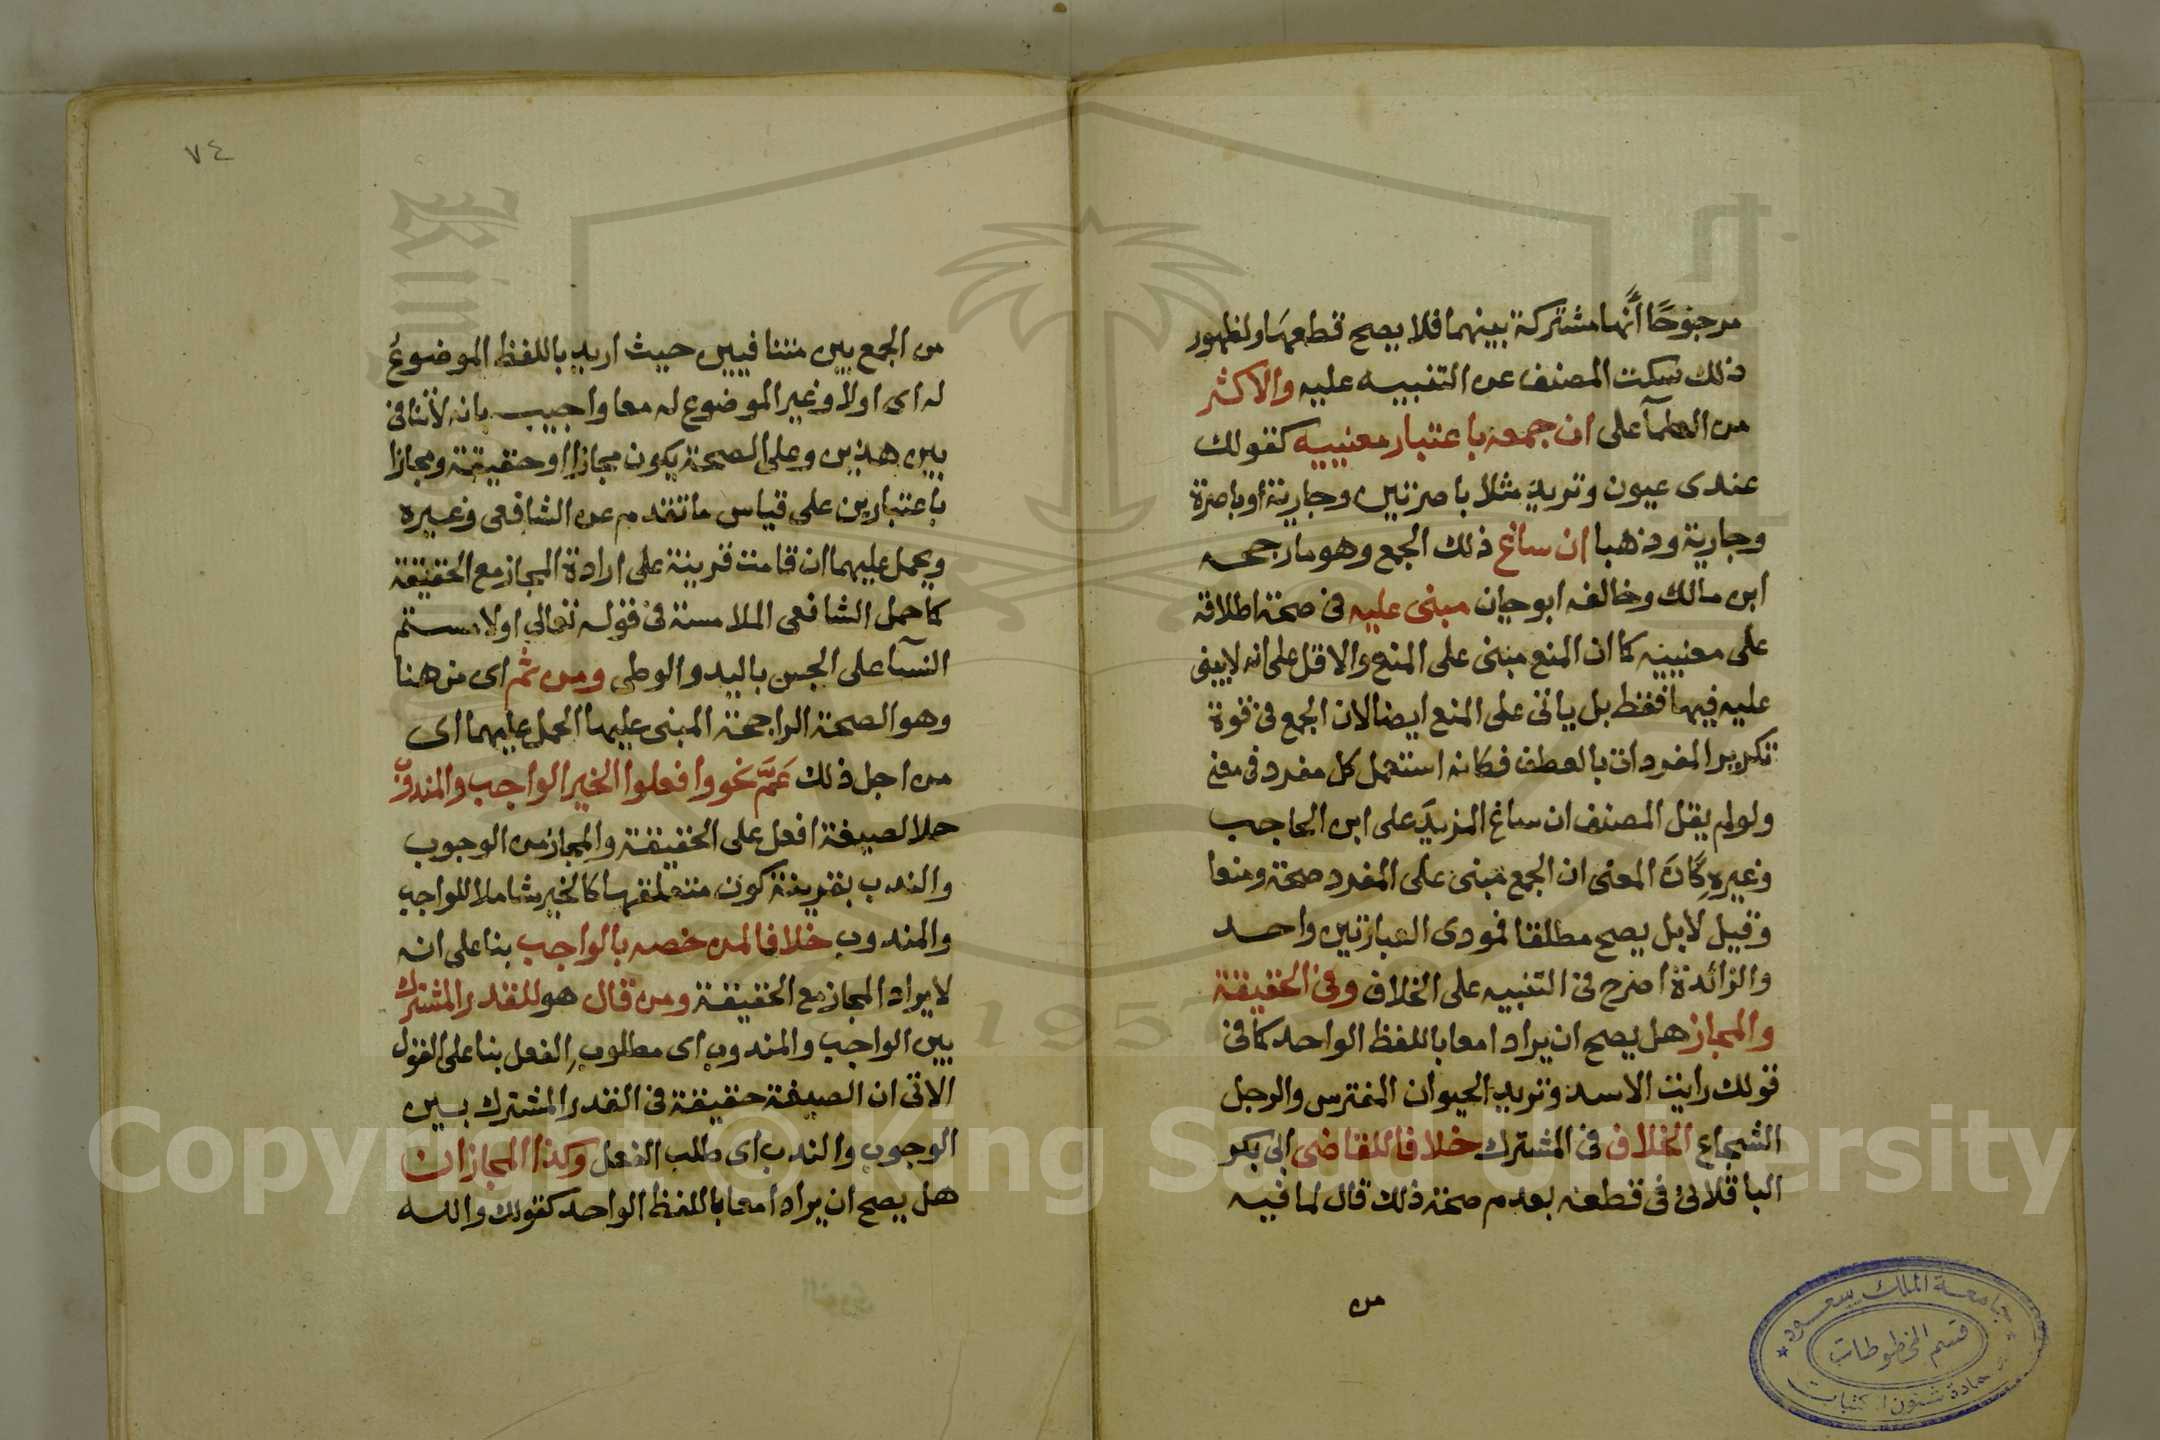 مرجوحًا أنها مشتركة بينهما فلا يصح قطعهَا ولظهور
ذلك سكت المصنف عن التنبيه عليه والاكثر
من العلمآ على ان جمعه باعتبار معنييه كقولك
عندى عيون وتريد مثلا باصرتين وجارية او باصرة
وجارية وذهبا ان ساغ ذلك الجمع وهو ما رجحه
ابن مالك وخالفه ابو حيان مبنى عليه فى صحة اطلاقه
على معنييه كما ان المنع مبنى على المنع والاقل على انه لا يبنى
عليه فيها فقط بل ياتى على المنع ايضا لان الجمع فى قوة
تكرير المفردات بالعطف فكانه استعمل كل مفرد فى معنى
ولو لم يقل المصنف ان ساغ المزيدَ على ابن الحاجب
وغيره كَانَ المعنى ان الجمع مبنى على المفرد صحة ومنعا
وقيل لا بل يصح مطلقا فمودى العبارتين واحد
والزائدة اصرح فى التنبيه على الخلاف وفى الحقيقة
والمجاز هل يصح ان يرادا معا باللفظ الواحد كما فى
قولك رايت الاسد وتريد الحيوان المفترس والرجل
الشجاع الخلاف فى المشترك خلافا للقاضى ابى بكر
الباقلانى فى قطعه بعدم صحة ذلك قال لما فيه
من
٧٤
من الجمع بين متنافيين حيث اريد باللفظ الموضوع
له اى اولا وغير الموضوع له معا واجيب بانه لا تنافى
بين هذين وعلى الصحة يكون مجازا او حقيقة ومجازا
باعتبارين على قياس ما تقدم عن الشافعى وغيره
ويحمل عليهما ان قامت قرينة على ارادة المجاز مع الحقيقة
كما حمل الشافعى الملامسة فى قوله تعالى او لامستم
النسآ على الجس باليد والوطى ومن ثم اى من هنا
وهو الصحة الراجحة المبنى عليها الحمل عليهما اى
من اجل ذلك عَمَّ نحو وافعلوا الخير الواجب والمندوب
حملا لصيغة افعل على الحقيقة والمجاز من الوجوب
والندب بقرينة كون متعلقها كالخير شاملا للواجب
والمندوب خلافا لمن خصه بالواجب بنا على انه
لا يراد المجاز مع الحقيقة ومن قال هو للقدر المشترك
بين الواجب والمندوب اى مطلوب الفعل بنا على القول
الاتى ان الصيغة حقيقة فى القدر المشترك بين
الوجوب والندب اى طلب الفعل وكذا المجازان
هل يصح ان يرادا معا باللفظ الواحد كقولك والله
جامعة الملك سعود
قسم المخطوطات
عمادة شئون المكتبات
Copyright © King Saud University
1957